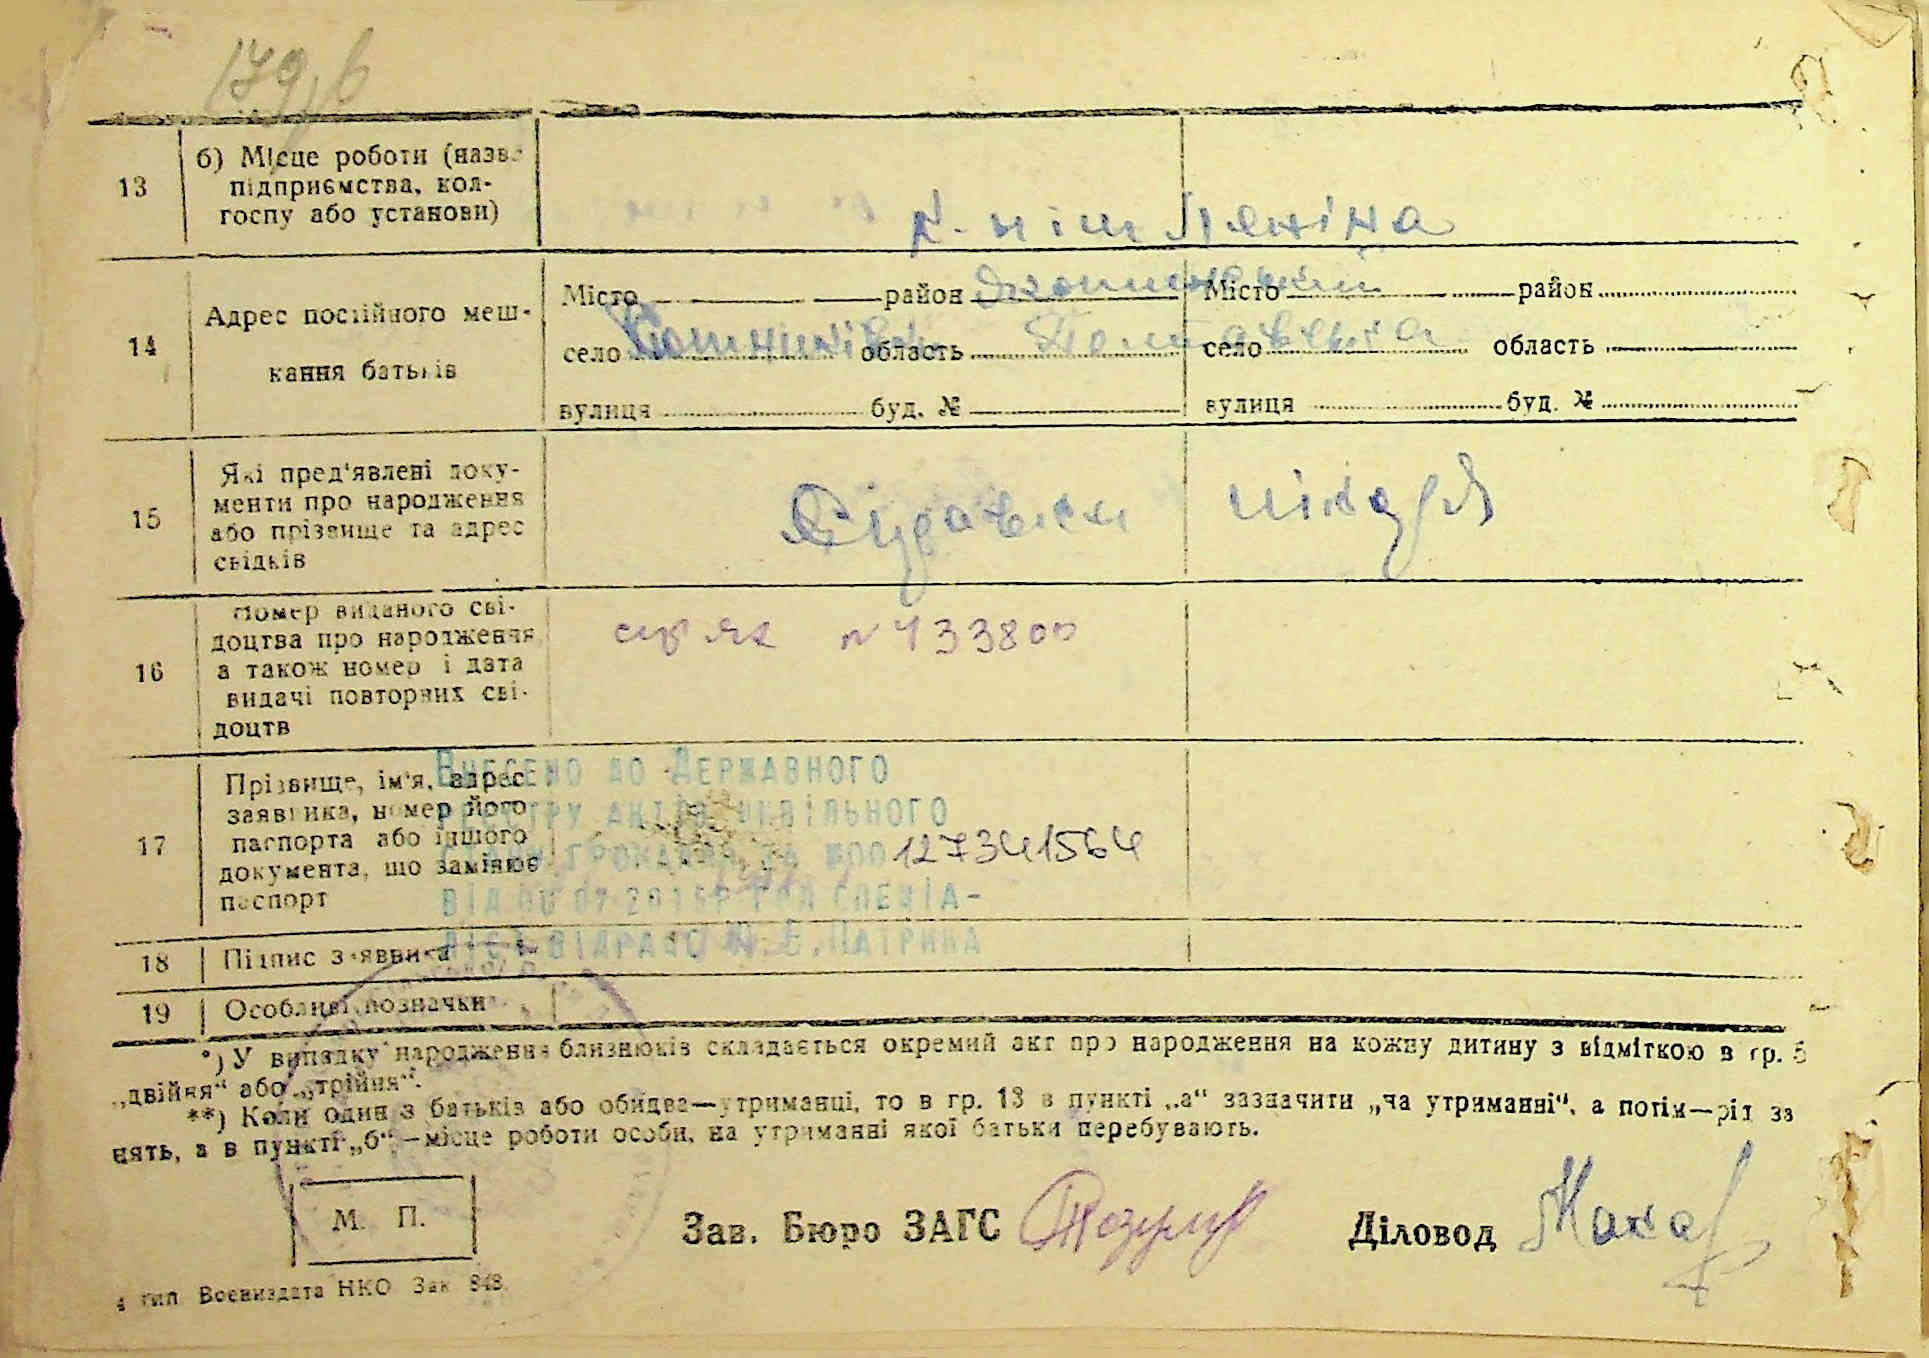 179,6
13
б) Місце роботи (назва
підприємства, кол-
госпу або установи)
К-п ім Леніна
14
Адрес постійного меш-
кання батьків
Місто район Місто район
село область село область
вулиця буд. № вулиця буд. №
15
Які пред'явлені доку-
менти про народження
або прізвище та адрес
свідків
16
Номер виданого сві-
доцтва про народження
а також номер і дата
видачі повторних сві-
доцтв
№ 433800
17
Прізвище, ім'я, адрес
заявника, номер його
паспорта або іншого
документа, що замінює
паспорт
Внесено до Державного
реєстру актів цивільного
стану громадян за №00127341564
спеціа-
ліст відрацс
18 Підпис заявника
19 Особливі позначки
*) У випадку народження близнюків складається окремий акт про народження на кожну дитину з відміткою в гр. 5
„двійня“ або „трійня“.
**) Коли один з батьків або обидва—утриманці, то в гр. 13 в пункті „а“ зазначити „на утриманні“, а потім—рід за
нять, а в пункті „б“—місце роботи особи, на утриманні якої батьки перебувають.
М. П.
Зав. Бюро ЗАГС
Діловод
4 тип. Воениздата НКО Зак 848